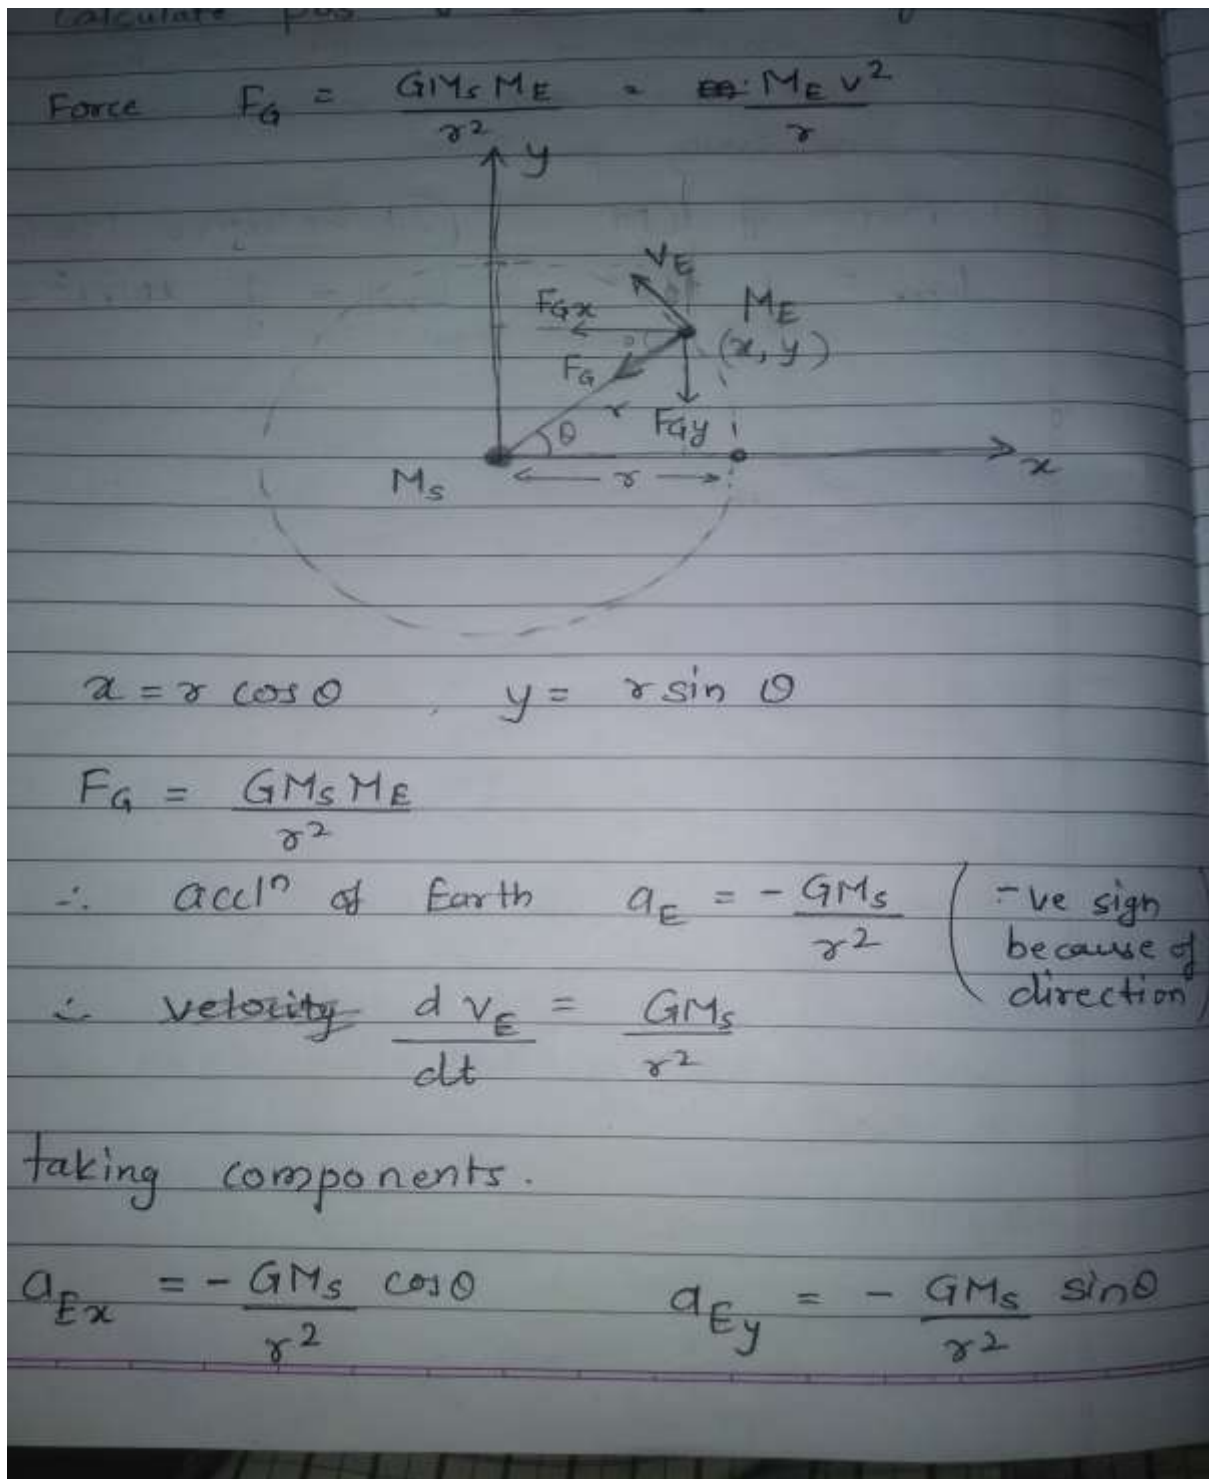 Calculate pos
Force F_G = GM_S M_E / r² = M_E v² / r
y
V_E
F_Gx
M_E
(x, y)
F_G
r
F_Gy
θ
M_S
r
x
x = r cos θ , y = r sin θ
F_G = GM_S M_E / r²
∴ accln of Earth a_E = - GM_S / r² ( -ve sign because of direction )
∴ velocity dv_E / dt = GM_S / r²
taking components.
a_Ex = - GM_S / r² cosθ a_Ey = - GM_S / r² sinθ